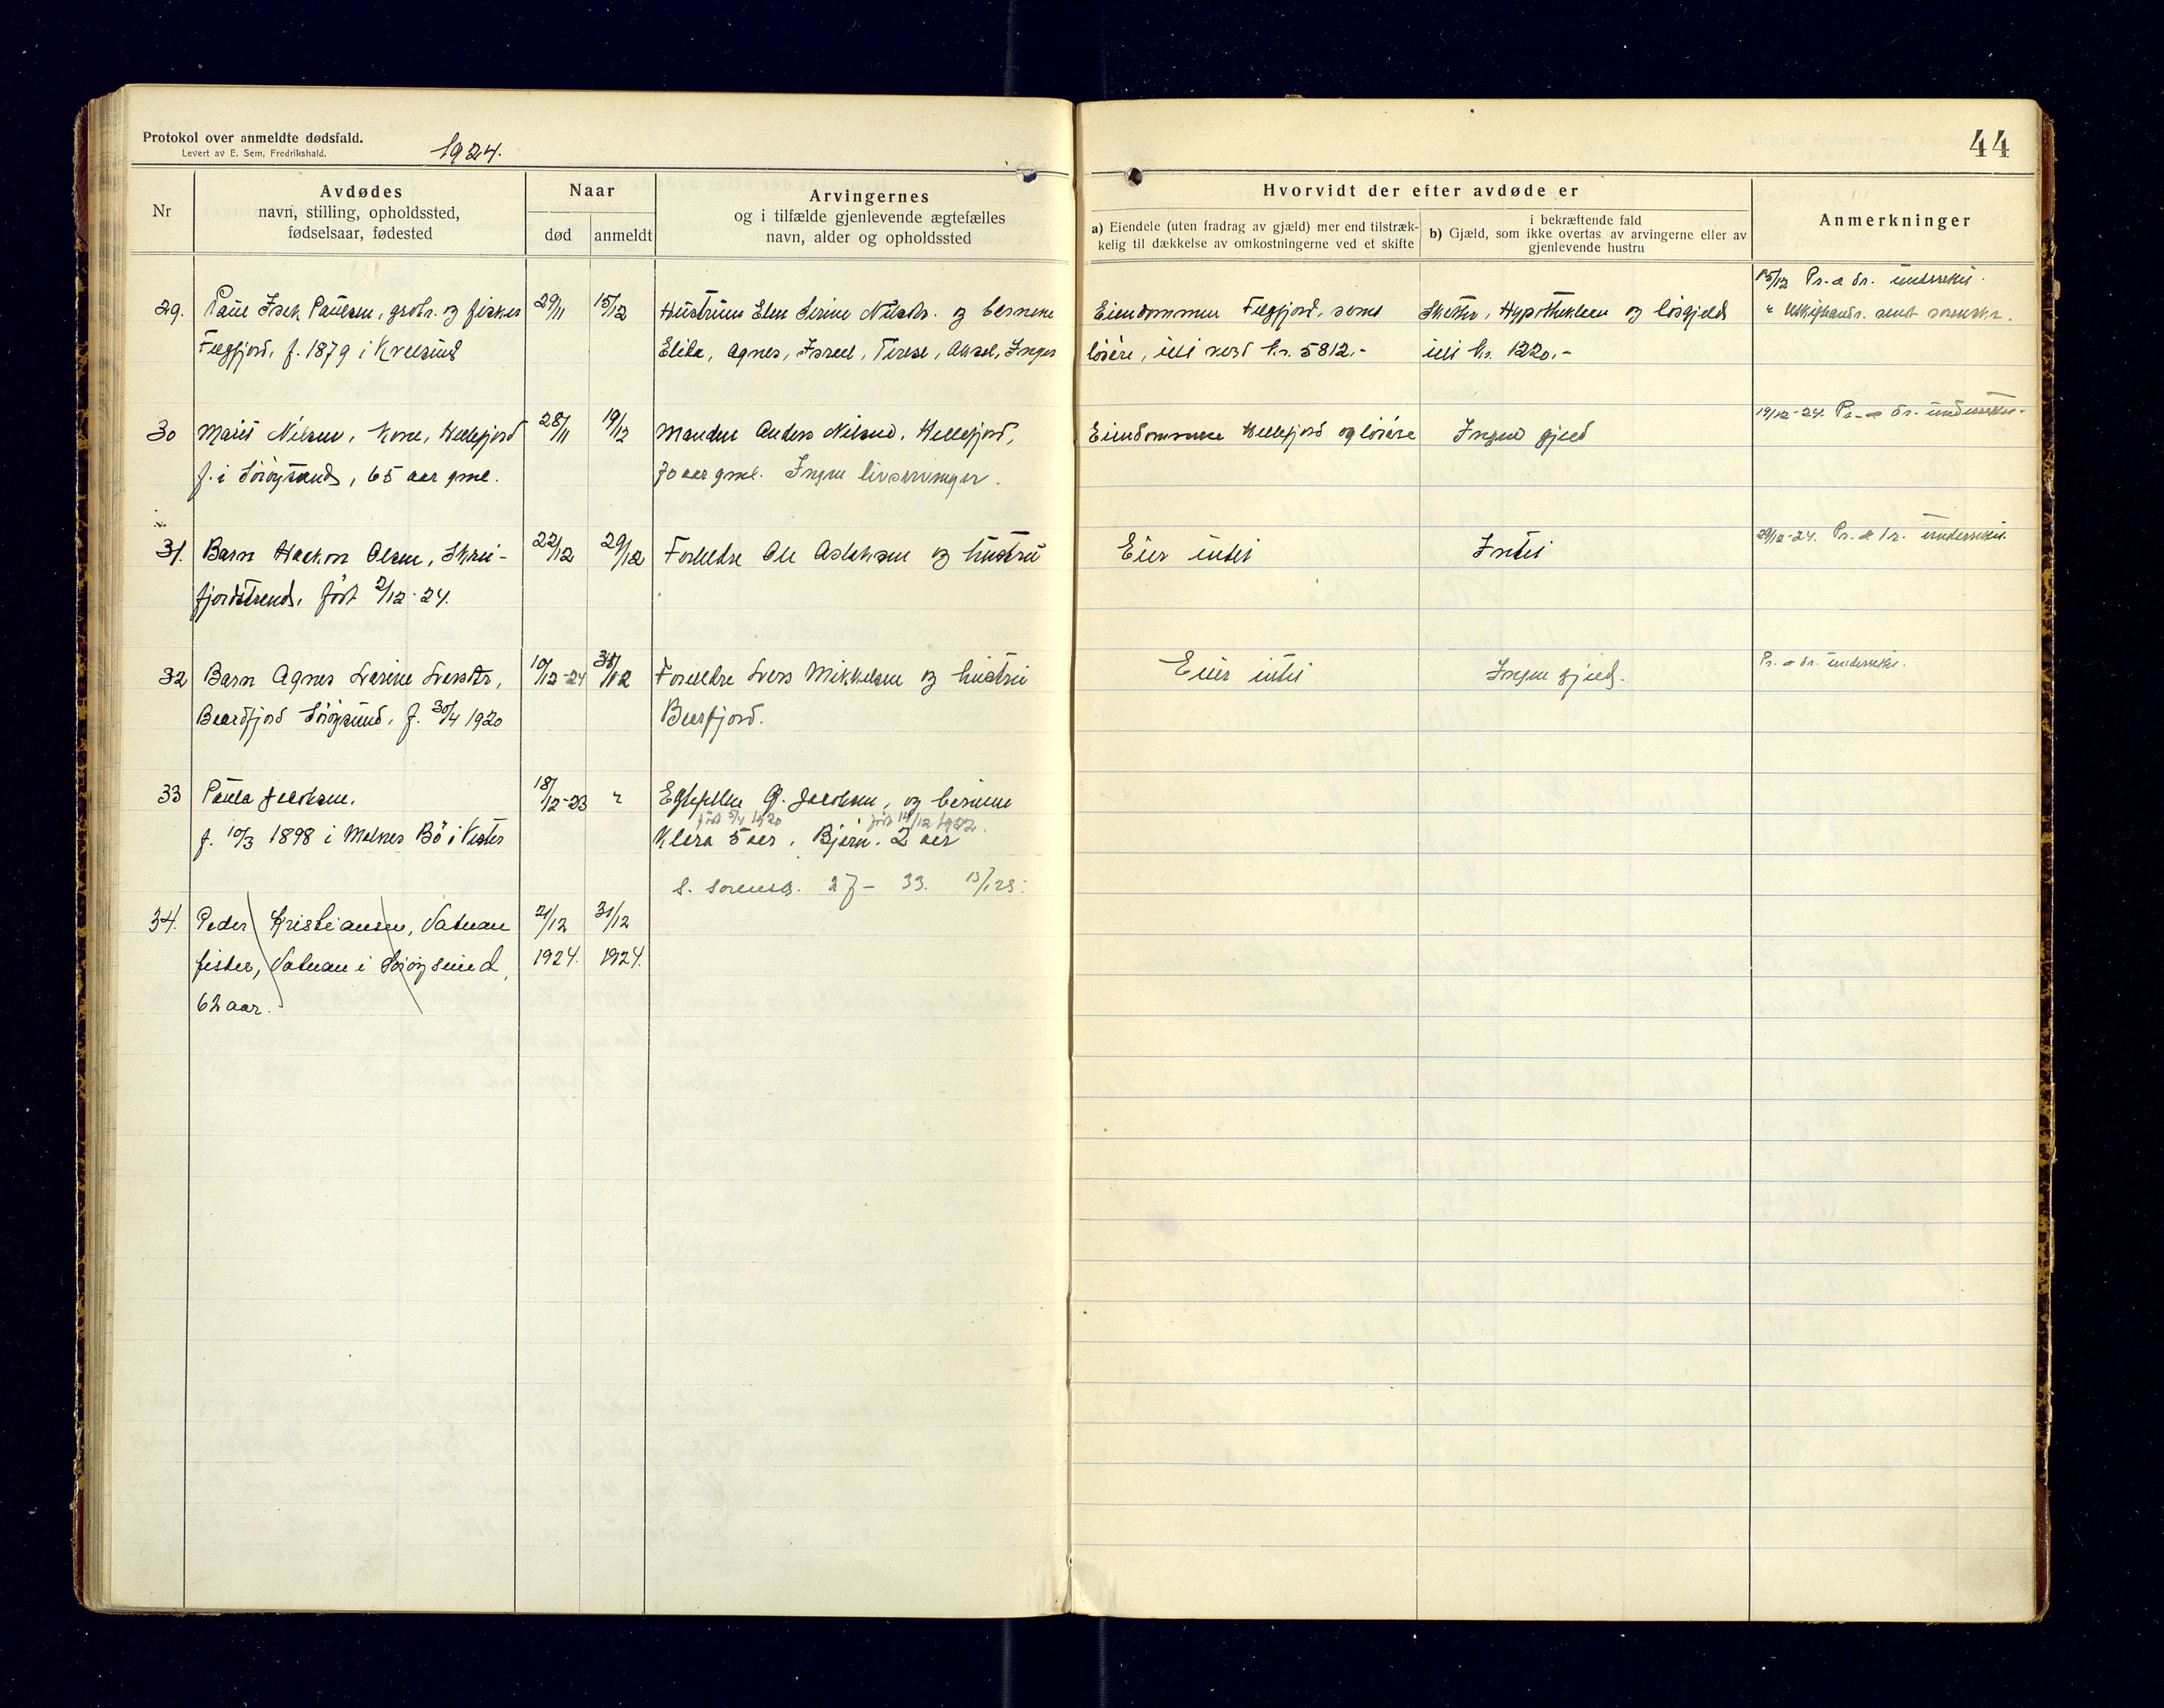 Protokol over anmeldte dødsfald.
Levert av E. Sem, Fredrikshald.
1924.
44
Nr
Avdødes
navn, stilling, opholdssted,
fødselsaar, fødested
Naar
død
anmeldt
Arvingernes
og i tilfælde gjenlevende ægtefælles
navn, alder og opholdssted
Hvorvidt der efter avdøde er
a) Eiendele (uten fradrag av gjæld) mer end tilstræk-
kelig til dækkelse av omkostningerne ved et skifte
i bekræftende fald
b) Gjæld, som ikke overtas av arvingerne eller av
gjenlevende hustru
Anmerkninger
29.
Paul Isak Paulsen, grbr. og fisker
f. 1879 i Kvalsund
29/11
15/12
Hustruen Elen Serine Nilsdtr. og barnene
Elida, Agnes, Israel, Terese, Aksel, Inger
Eiendommen
løsøre, alt verd kr. 5812.-
Skatter, Hypotheklaan og løsgjeld
alt kr. 1220.-
15/12 Pr. a dr. undersøkt.
30
Marit Nilsen, kone, Hellefjord
f. i Sørøysund, 65 aar gml.
28/11
19/12
Manden Anders Nilsen, Hellefjord,
70 aar gml. Ingen livsarvinger.
Eiendommen Hellefjord og løsøre
Ingen gjeld
19/12-24. Pr. a dr. undersøkt.
31.
Barn Haakon Olsen, Skrei-
fjordstrand, født 2/12-24.
22/12
29/12
Foreldre Ole Aslaksen og hustru
Eier intet
Intet
29/12-24. Pr. a dr. undersøkt.
32
Barn Agnes Larsine Larsdtr,
Sørøysund, f. 30/4 1920
10/12-24
31/12
Foreldre Lars Mikkelsen og hustru
Eier intet
Ingen gjeld.
Pr. a dr. undersøkt.
33
Paula Jacobsen.
f. 10/3 1898 i Malnes Bø i Vester
18/12-23
"
Egtefellen G. Jacobsen, og barnene
født 5/4 1920 født 14/12 1922.
Klara 5 aar, Bjørn. 2 aar
s. sorensk. 27 - 33. 13/1 25.
34.
Peder Kristiansen, Vatnan
fisker, Vatnan i Sørøysund,
62 aar.
21/12
1924.
31/12
1924.